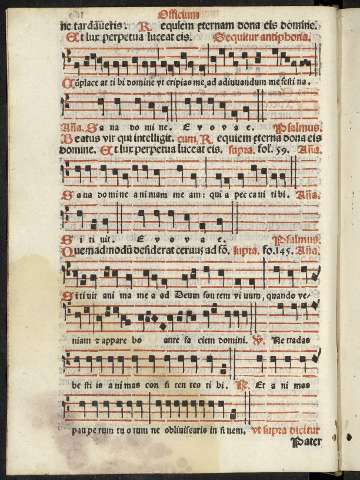 Officium
ne tardaueris. R. Requiem eternam dona eis domine.
Et lux perpetua luceat eis. Sequitur antiphona.
Cōplace at ti bi domine vt eripias me ad adiuuandum me festi na.
Aña. Sa na do mi ne. E v o v a e. Psalmus.
Beatus vir qui intelligit. cum R. Requiem eterna dona eis
domine. Et lux perpetua luceat eis. supra. fol. 59. Aña.
Sa na do mi ne ani mam me am: qui a pec ca ui ti bi. Aña.
Si ti uit. E v o v a e. Psalmus.
Quemadmodū desiderat ceruus ad fō. supra. fo. 145. Aña.
Si ti uit ani ma me a ad Deum fon tem vi uum, quando ve
niam & appare bo ante fa ciem domini. V. Ne tradas
be sti is a ni mas con fi ten tes ti bi. R. Et a ni mas
pau pe rum tu o rum ne obliuiscaris in fi nem. vt supra dicitur
Pater